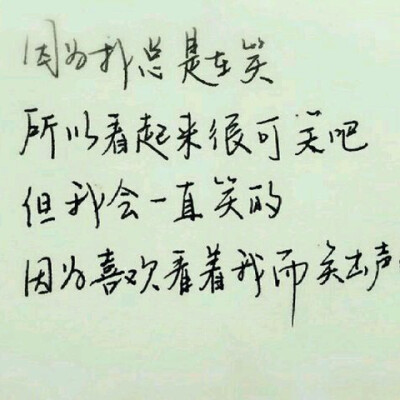 因为我总是在笑
所以看起来很可笑吧
但我会一直笑的
因为喜欢看着我而笑出声